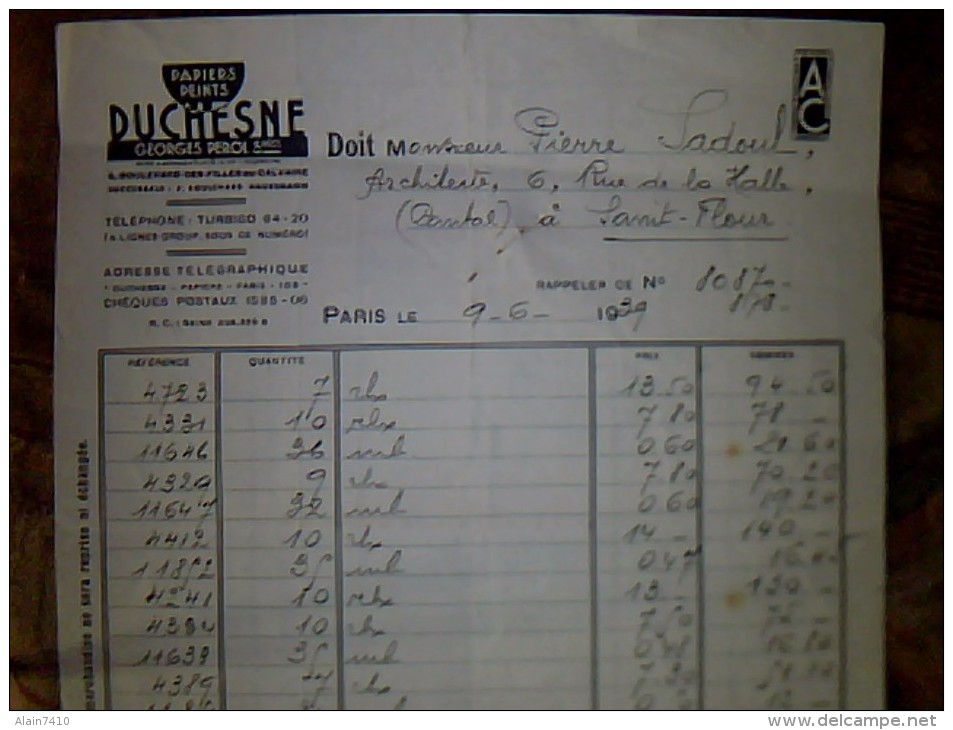 PAPIERS
PEINTS
DUCHESNE
GEORGES PEROL
6, BOULEVARD DES FILLES DU CALVAIRE
TÉLÉPHONE : TURBIGO 64-20
(4 LIGNES GROUP. SOUS CE NUMÉRO)
ADRESSE TÉLÉGRAPHIQUE
DUCHESNE - PAPIERS - PARIS - 103
CHÈQUES POSTAUX 1595-06
AC
Doit Monsieur Pierre Sadoul,
Architecte, 6, Rue de la Halle,
(Cantal) à Saint-Flour
RAPPELER CE N° 80870
878
PARIS LE 9-6- 1939
RÉFÉRENCE QUANTITÉ PRIX SOMMES
4723 7 rlx 13.50 94.50
4331 10 rlx 7 80 78 -
11646 36 ml 0 60 21 60
4329 9 rlx 7 80 70 20
11647 32 ml 0 60 19 20
4412 10 rlx 14 - 140 -
11852 35 ml 0 47 16
4241 10 rlx 13 - 130 -
4394 10 rlx 7 50
11639 35 ml
4389 7 rlx
marchandise ne sera reprise ni échangée.
Alain7410
www.delcampe.net